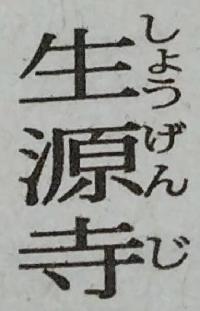 生源寺
しょうげんじ